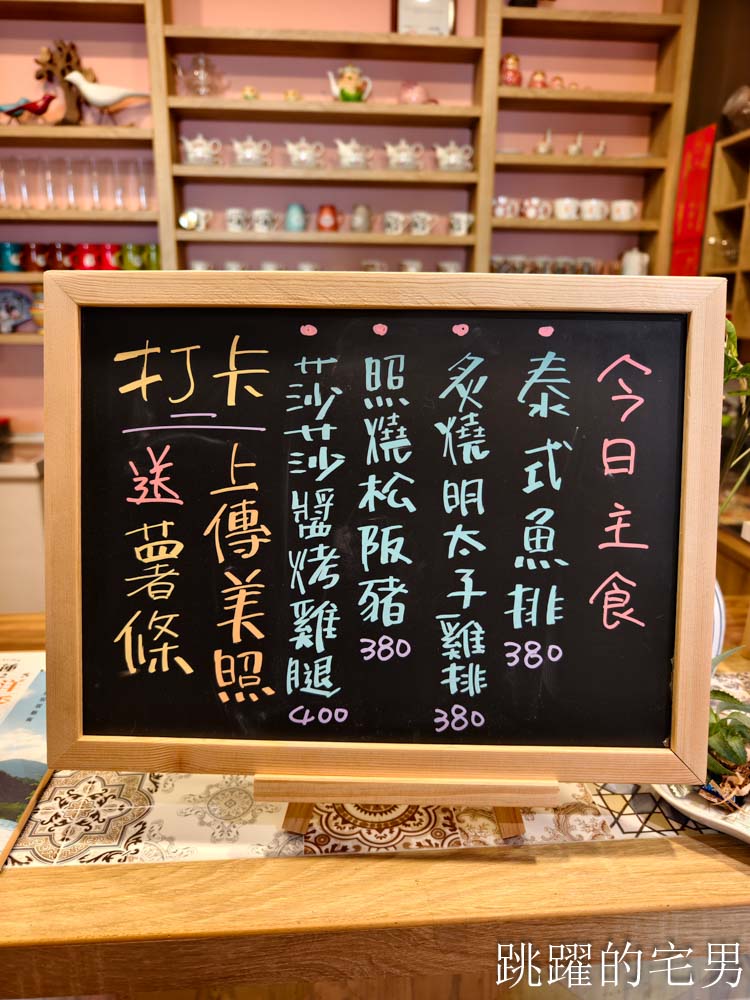 今日主食
泰式魚排
380
炙燒明太子雞排
380
照燒松阪豬
380
莎莎醬烤雞腿
400
打卡
上傳美照
送薯條
跳躍的宅男